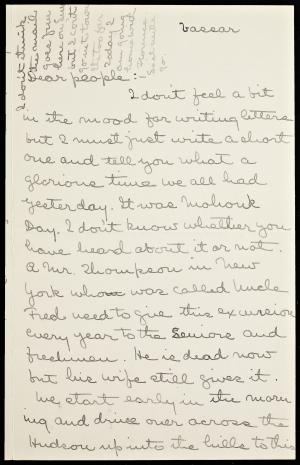 Vassar
I don't think
the mail
goes from
here on Sun
but I can't
go in town
it too far
today I
am going
some more
Dear people:
I don't feel a bit
in the mood for writing letters
but I must just write a short
one and tell you what a
glorious time we all had
yesterday. It was Mohonk
Day. I don't know whather you
have heard about it or not.
A Mr. Thompson in New
York whom was called Uncle
Fred used to give this excursion
every year to the Seniors and
freshmen. He is dead now
but his wife still gives it.
We start early in the morn
ing and drive over across the
Hudson up into the hills to this